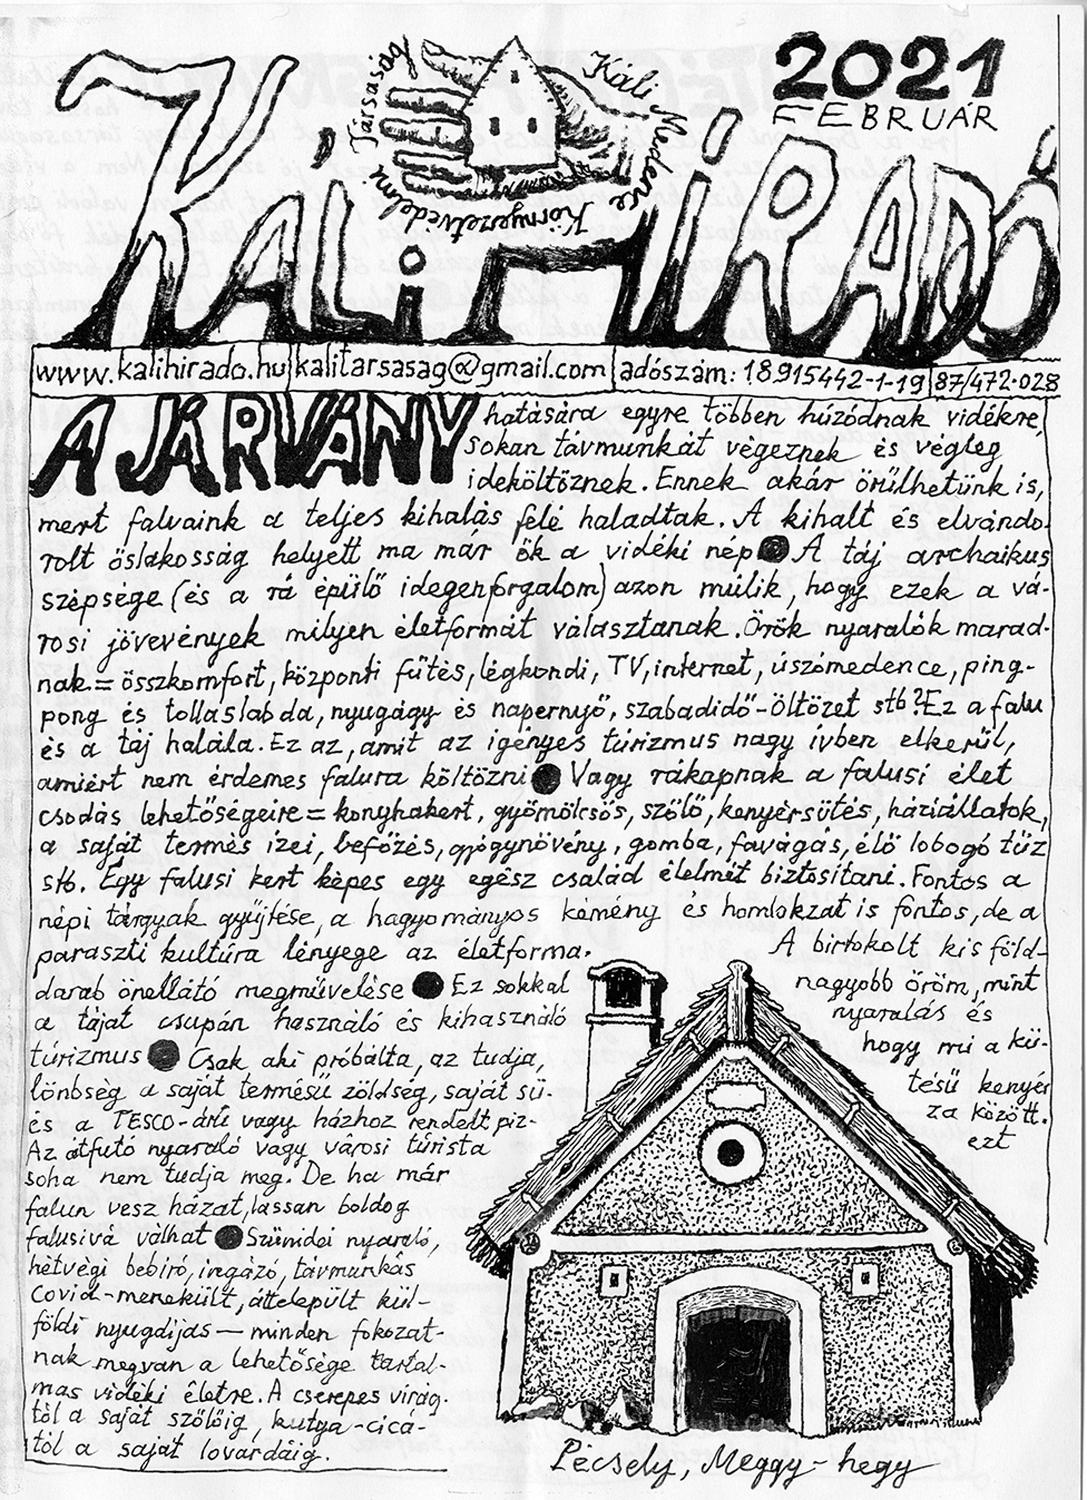 2021
FEBRUÁR
Káli HÍRADÓ
Káli Medence Környezetvédelmi Társaság
www.kalihirado.hu kalitarsasag@gmail.com adószám: 18915442-1-19 87/472-028
A JÁRVÁNY hatására egyre többen húzódnak vidékre,
sokan távmunkát végeznek és végleg
ideköltöznek. Ennek akár örülhetünk is,
mert falvaink a teljes kihalás felé haladtak. A kihalt és elvándo-
rolt őslakosság helyett ma már ők a vidéki nép ● A táj archaikus
szépsége (és a rá épülő idegenforgalom) azon múlik, hogy ezek a vá-
rosi jövevények milyen életformát választanak. Örök nyaralók marad-
nak = összkomfort, központi fűtés, légkondi, TV, internet, úszómedence, ping-
pong és tollaslabda, nyugágy és napernyő, szabadidő-öltözet stb? Ez a falu
és a táj halála. Ez az, amit az igényes túrizmus nagy ívben elkerül,
amiért nem érdemes falura költözni ● Vagy rákapnak a falusi élet
csodás lehetőségeire = konyhakert, gyömölcsös, szőlő, kenyérsütés, háziállatok,
a saját termés ízei, befőzés, gyógynövény, gomba, favágás, élő lobogó tűz
stb. Egy falusi kert képes egy egész család élelmét biztosítani. Fontos a
népi tárgyak gyűjtése, a hagyományos kémény és homlokzat is fontos, de a
paraszti kultúra lényege az életforma. A birtokolt kis föld-
darab önellátó megművelése ● Ez sokkal nagyobb öröm, mint
a tájat csupán használó és kihasználó nyaralás és
túrizmus ● Csak aki próbálta, az tudja, hogy mi a kü-
lönbség a saját termésű zöldség, saját sü- tésű kenyér
és a TESCO-árú vagy házhoz rendelt piz- za között.
Az átfutó nyaraló vagy városi túrista ezt
soha nem tudja meg. De ha már
falun vesz házat, lassan boldog
falusivá válhat ● Szünidei nyaraló,
hétvégi bebíró, ingázó, távmunkás
Covid-menekült, áttelepült kül-
földi nyugdíjas — minden fokozat-
nak megvan a lehetősége tartal-
mas vidéki életre. A cserepes virág-
tól a saját szőlőig, kutya-cicá-
tól a saját lovardáig.
Pécsely, Meggy-hegy